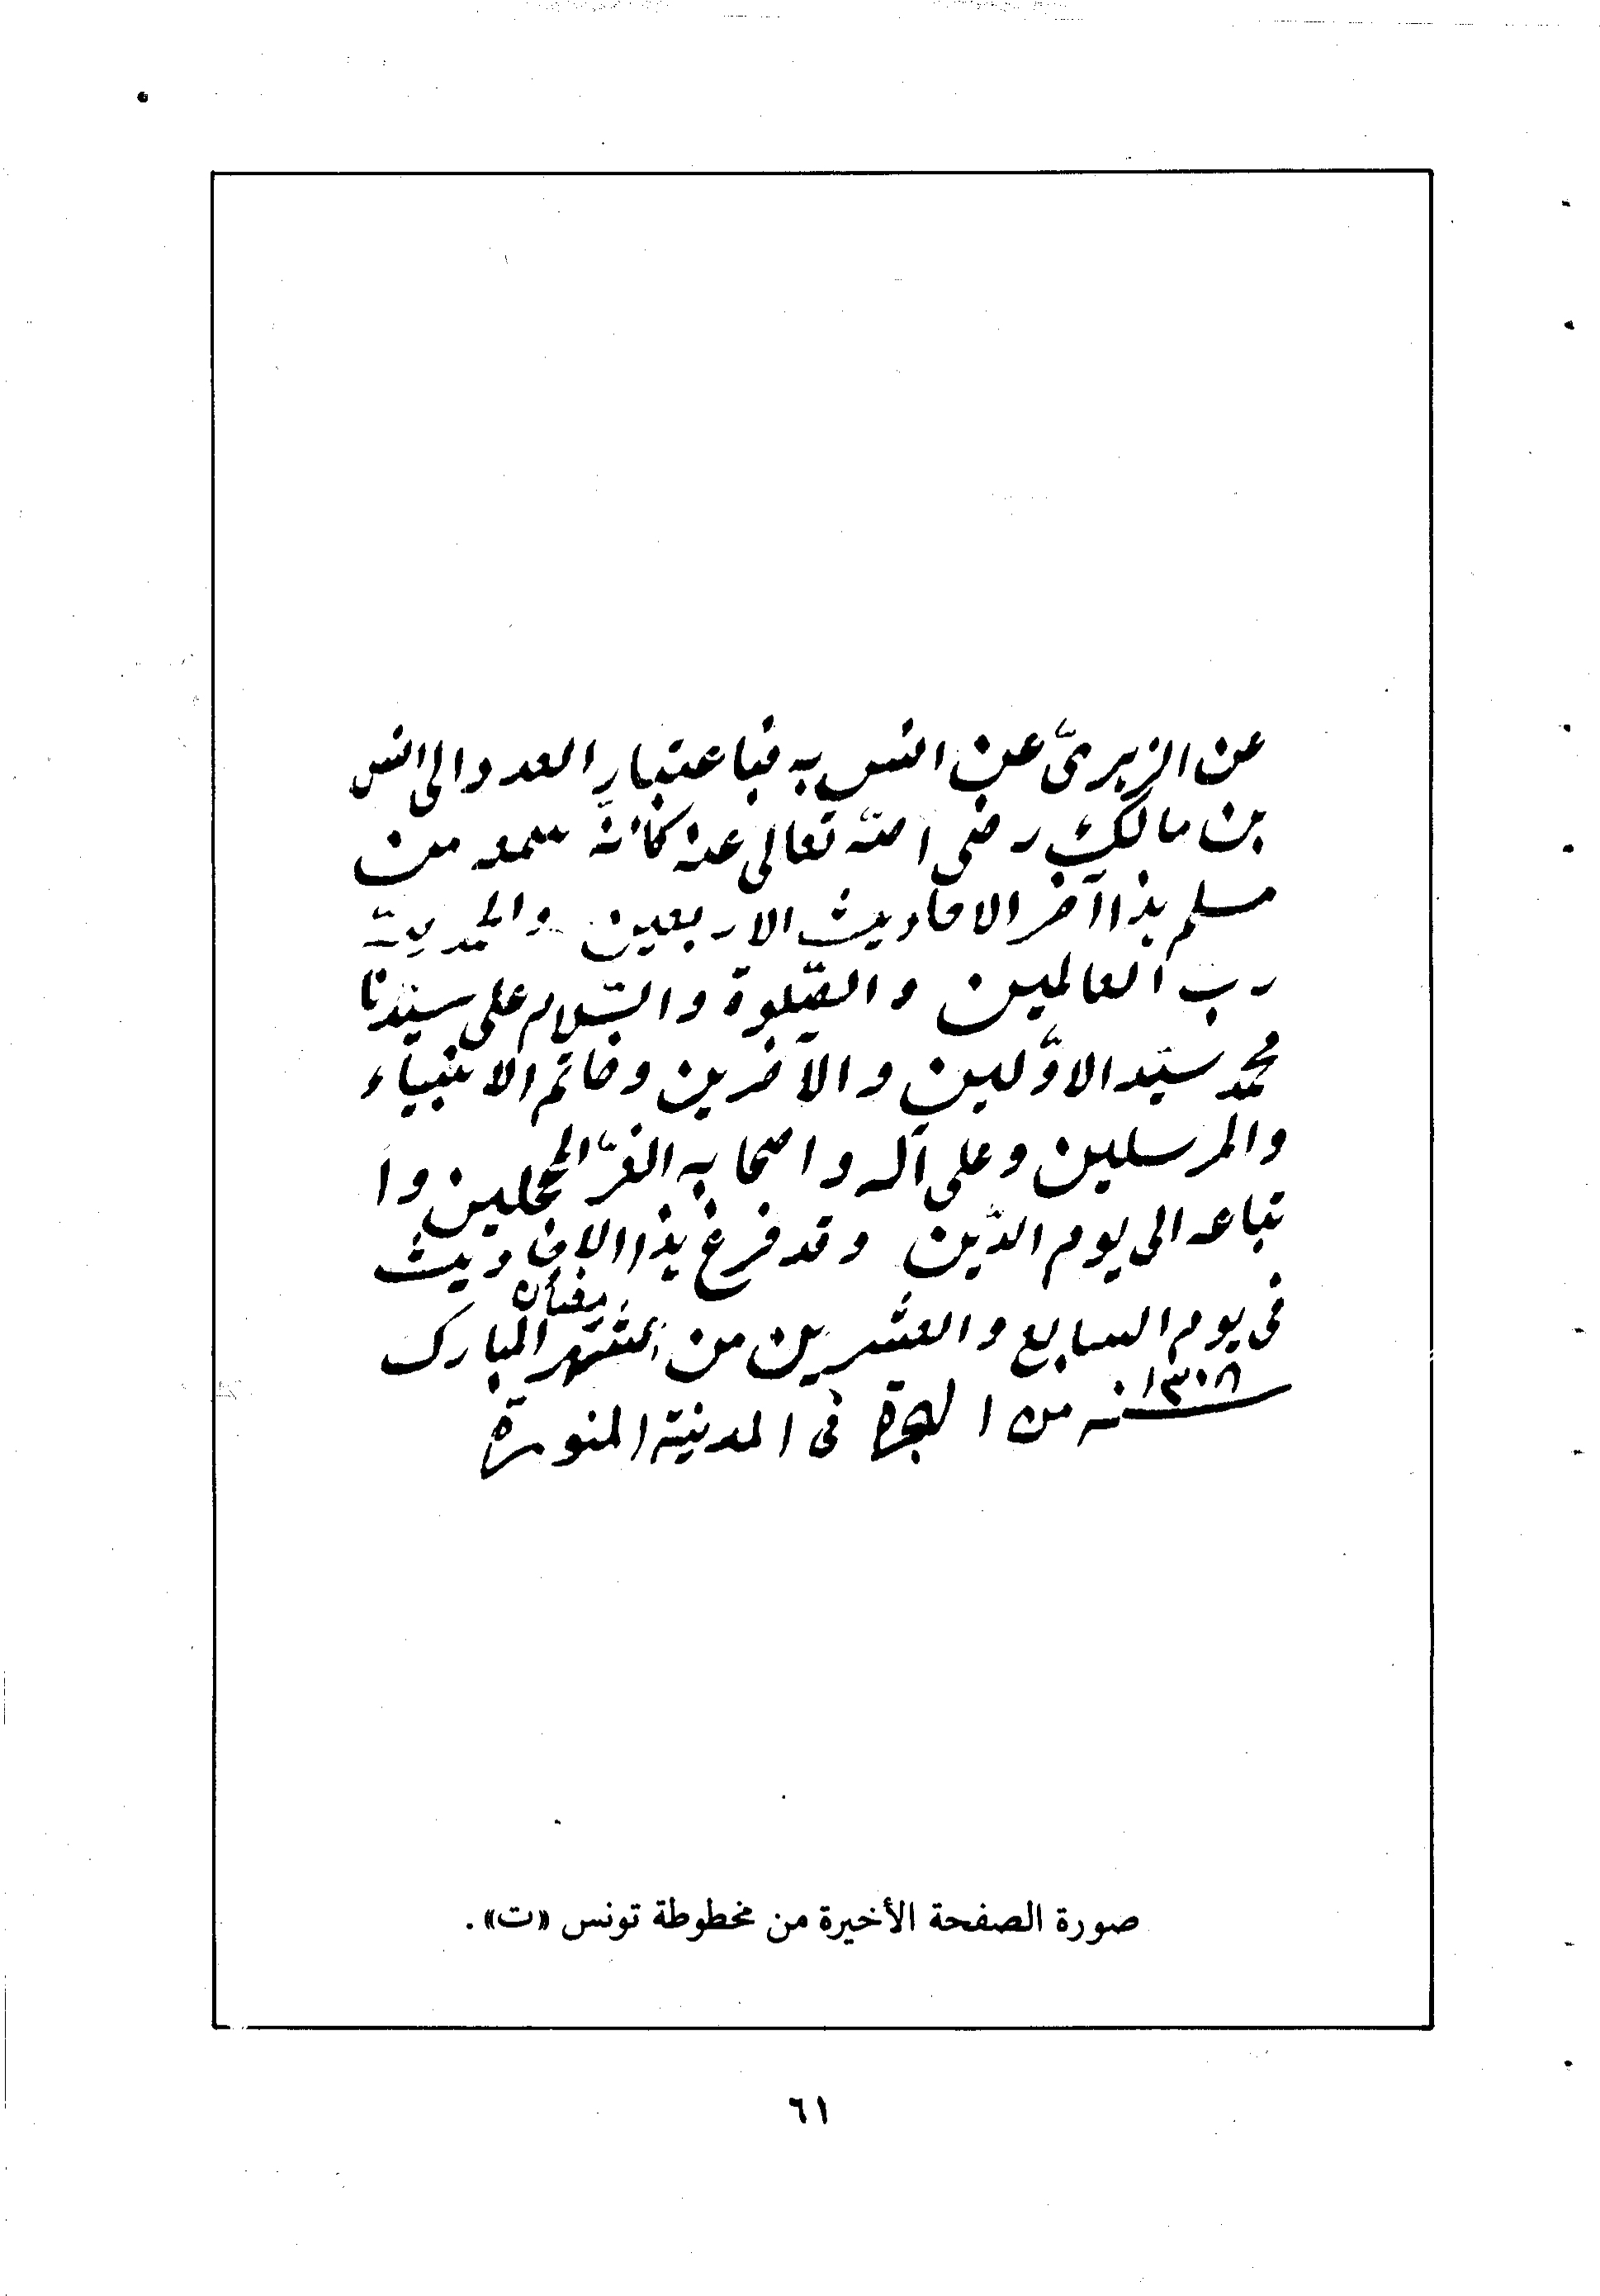 عن الزهرىّ عن انس به فباعتبار العدد الى انس
بن مالك رضى الله تعالى عنه كانه سمعه من
مسلم هذا آخر الاحاديث الاربعين والحمد لله
رب العالمين والصّلوة والسّلام على سيّدنا
محمد سيّد الاوّلين والآخرين وخاتم الانبياء
والمرسلين وعلى آله واصحابه الغرّ المحجلين وا
تباعه الى يوم الدّين وقد فرغ هذا الاحاديث
فى يوم السابع والعشرين من الشهر رمضان المبارك
١٣٠٨ سنه من الهجرة فى المدينة المنورة
صورة الصفحة الأخيرة من مخطوطة تونس «ت».
٦١